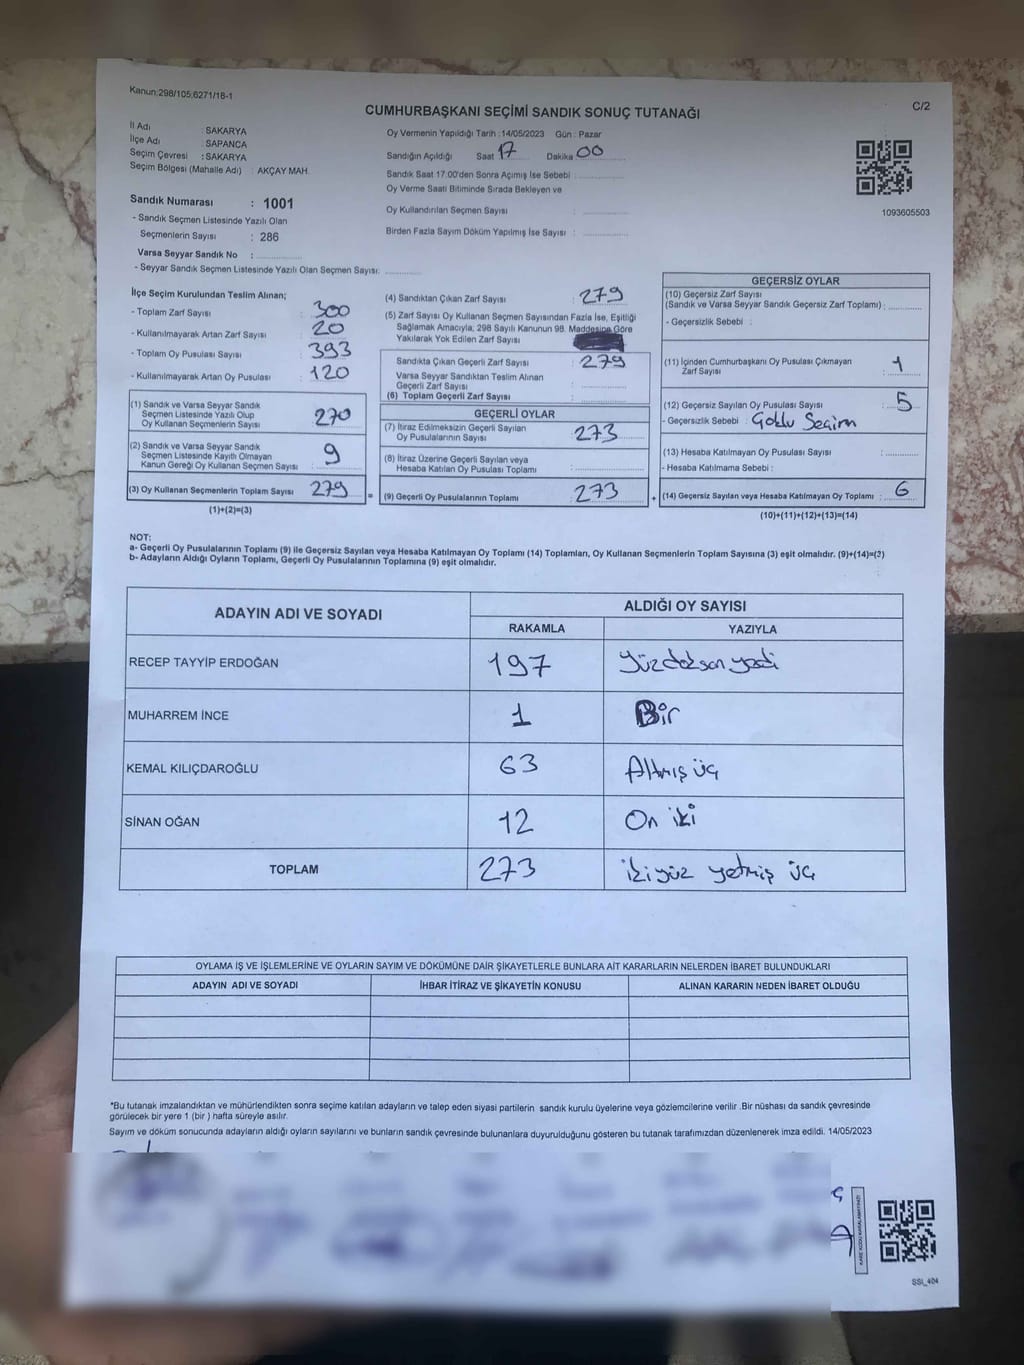 Kanun:298/105,6271/18-1
CUMHURBAŞKANI SEÇİMİ SANDIK SONUÇ TUTANAĞI
C/2
İl Adı : SAKARYA
İlçe Adı : SAPANCA
Seçim Çevresi : SAKARYA
Seçim Bölgesi (Mahalle Adı) : AKÇAY MAH.
Sandık Numarası : 1001
- Sandık Seçmen Listesinde Yazılı Olan
Seçmenlerin Sayısı : 286
Varsa Seyyar Sandık No :
- Seyyar Sandık Seçmen Listesinde Yazılı Olan Seçmen Sayısı:
Oy Vermenin Yapıldığı Tarih :14/05/2023 Gün : Pazar
Sandığın Açıldığı Saat 17 Dakika 00
Sandık Saat 17:00'den Sonra Açımış İse Sebebi :
Oy Verme Saati Bitiminde Sırada Bekleyen ve
Oy Kullandırılan Seçmen Sayısı :
Birden Fazla Sayım Döküm Yapılmış İse Sayısı :
1093605503
İlçe Seçim Kurulundan Teslim Alınan;
- Toplam Zarf Sayısı : 300
- Kullanılmayarak Artan Zarf Sayısı : 20
- Toplam Oy Pusulası Sayısı : 393
- Kullanılmayarak Artan Oy Pusulası : 120
(1) Sandık ve Varsa Seyyar Sandık
Seçmen Listesinde Yazılı Olup
Oy Kullanan Seçmenlerin Sayısı : 270
(2) Sandık ve Varsa Seyyar Sandık
Seçmen Listesinde Kayıtlı Olmayan
Kanun Gereği Oy Kullanan Seçmen Sayısı : 9
(3) Oy Kullanan Seçmenlerin Toplam Sayısı : 279
(1)+(2)=(3)
=
(4) Sandıktan Çıkan Zarf Sayısı : 279
(5) Zarf Sayısı Oy Kullanan Seçmen Sayısından Fazla İse, Eşitliği
Sağlamak Amacıyla, 298 Sayılı Kanunun 98. Maddesine Göre
Yakılarak Yok Edilen Zarf Sayısı
Sandıkta Çıkan Geçerli Zarf Sayısı : 279
Varsa Seyyar Sandıktan Teslim Alınan
Geçerli Zarf Sayısı :
(6) Toplam Geçerli Zarf Sayısı :
GEÇERLİ OYLAR
(7) İtiraz Edilmeksizin Geçerli Sayılan
Oy Pusulalarının Sayısı : 273
(8) İtiraz Üzerine Geçerli Sayılan veya
Hesaba Katılan Oy Pusulası Toplamı :
(9) Geçerli Oy Pusulalarının Toplamı : 273
+
GEÇERSİZ OYLAR
(10) Geçersiz Zarf Sayısı
(Sandık ve Varsa Seyyar Sandık Geçersiz Zarf Toplamı) :
- Geçersizlik Sebebi :
(11) İçinden Cumhurbaşkanı Oy Pusulası Çıkmayan
Zarf Sayısı : 1
(12) Geçersiz Sayılan Oy Pusulası Sayısı : 5
- Geçersizlik Sebebi : Çoklu Seçim
(13) Hesaba Katılmayan Oy Pusulası Sayısı :
- Hesaba Katılmama Sebebi :
(14) Geçersiz Sayılan veya Hesaba Katılmayan Oy Toplamı : 6
(10)+(11)+(12)+(13)=(14)
NOT:
a- Geçerli Oy Pusulalarının Toplamı (9) ile Geçersiz Sayılan veya Hesaba Katılmayan Oy Toplamı (14) Toplamları, Oy Kullanan Seçmenlerin Toplam Sayısına (3) eşit olmalıdır. (9)+(14)=(3)
b- Adayların Aldığı Oyların Toplamı, Geçerli Oy Pusulalarının Toplamına (9) eşit olmalıdır.
ADAYIN ADI VE SOYADI ALDIĞI OY SAYISI
RAKAMLA YAZIYLA
RECEP TAYYİP ERDOĞAN 197 Yüzdoksanyedi
MUHARREM İNCE 1 Bir
KEMAL KILIÇDAROĞLU 63 Altmış üç
SİNAN OĞAN 12 On iki
TOPLAM 273 ikiyüz yetmiş üç
OYLAMA İŞ VE İŞLEMLERİNE VE OYLARIN SAYIM VE DÖKÜMÜNE DAİR ŞİKAYETLERLE BUNLARA AİT KARARLARIN NELERDEN İBARET BULUNDUKLARI
ADAYIN ADI VE SOYADI İHBAR İTİRAZ VE ŞİKAYETİN KONUSU ALINAN KARARIN NEDEN İBARET OLDUĞU
*Bu tutanak imzalandıktan ve mühürlendikten sonra seçime katılan adayların ve talep eden siyasi partilerin sandık kurulu üyelerine veya gözlemcilerine verilir .Bir nüshası da sandık çevresinde
görülecek bir yere 1 (bir ) hafta süreyle asılır.
Sayım ve döküm sonucunda adayların aldığı oyların sayılarını ve bunların sandık çevresinde bulunanlara duyurulduğunu gösteren bu tutanak tarafımızdan düzenlenerek imza edildi. 14/05/2023
KARE KODU KARALAMAYINIZ!
SSI_404